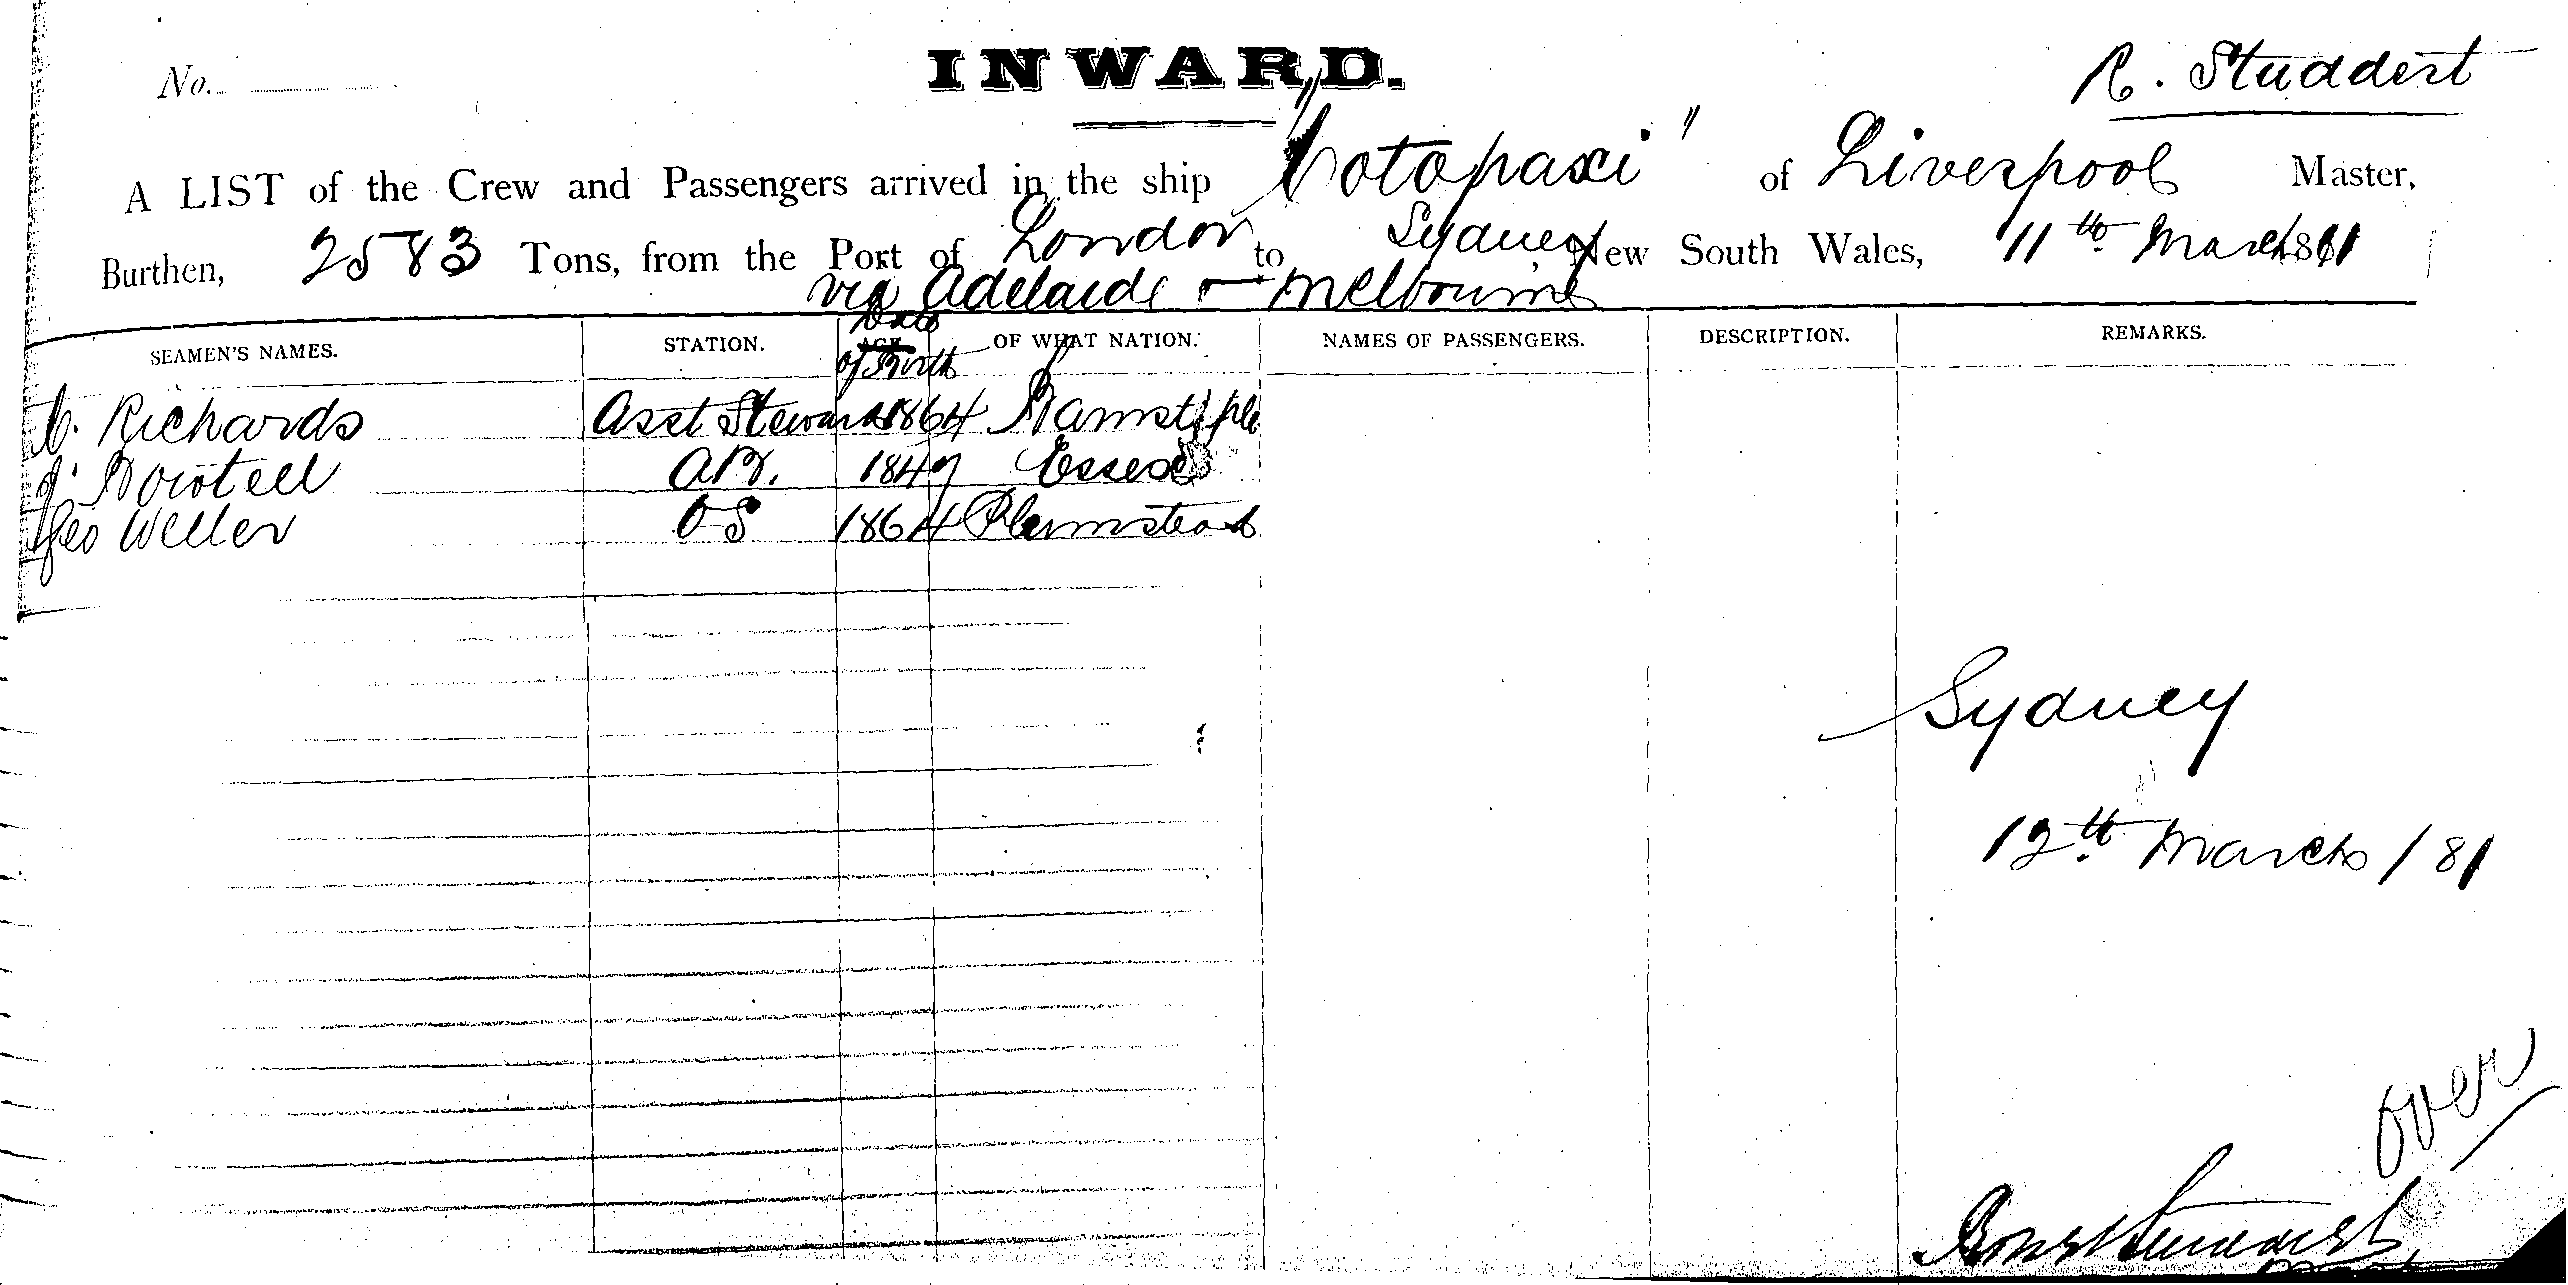 No.
INWARD.
R. Studdert
A LIST of the Crew and Passengers arrived in the ship "Cotopaxi" of Liverpool Master,
Burthen, 2583 Tons, from the Port of London to Sydney New South Wales, 11th March 1881
via Adelaide & Melbourne
SEAMEN'S NAMES. STATION. AGE Date of Birth OF WHAT NATION. NAMES OF PASSENGERS. DESCRIPTION. REMARKS.
C. Richards Asst Steward 1864 Barnstaple
J. Bowtell AB. 1847 Essex
Geo Weller OS 1864 Plumstead
Sydney
12th March / 81
over